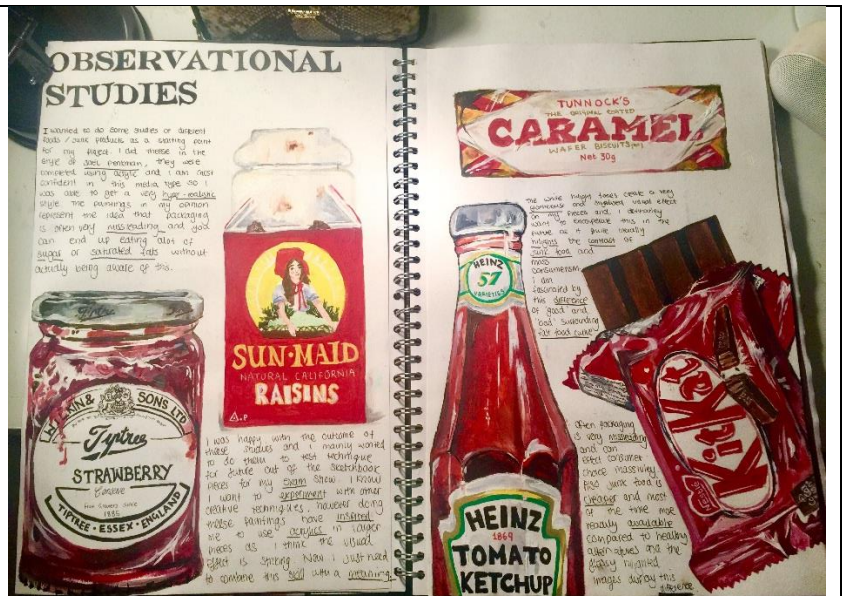 OBSERVATIONAL
STUDIES
I wanted to do some studies of different
foods / junk products as a starting point
for my project. I did these in the
style of Joel Penkman, they were
completed using acrylic and I am most
confident in this media type so I
was able to get a very hyper-realistic
style. The paintings in my opinion
represent the idea that packaging
is often very missleading and you
can end up eating alot of
sugar or saturated fats without
actually being aware of this.
SUN-MAID
NATURAL CALIFORNIA
RAISINS
& SONS LTD
Tiptree
STRAWBERRY
Conserve
1885
TIPTREE · ESSEX · ENGLAND
I was happy with the outcome of
these studies and I mainly wanted
to do them to test technique
for future out of the sketchbook
pieces for my exam show. I know
I want to experiment with other
creative techniques, however doing
these paintings have inspired
me to use acrylics in larger
pieces as I think the visual
effect is strong. Now I just need
to combine this with a meaning.
TUNNOCK'S
THE ORIGINAL COATED
CARAMEL
WAFER BISCUITS
Net 30g
The white highlight tones create a very
and visual effect
on my pieces and I definitely
want to incorporate this in the
future as it quite literally
highlights the contrast of
junk food and
mass
consumerism.
I am
fascinated by
this difference
of 'good' and
'bad' surrounding
fast food culture
HEINZ
57
VARIETIES
HEINZ
1869
TOMATO
KETCHUP
Nestle
KitKat
Often packaging
is very missleading
and can
effect consumer
choice massively.
Also junk food is
cheaper and most
of the time more
readily available
compared to healthy
alternatives and the
glossy highlighted
images display this
difference